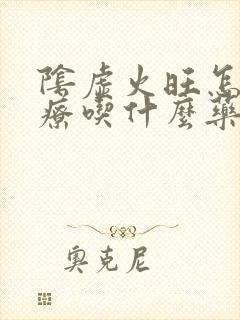 陰虛火旺怎
療喫什麼藥
奧克尼